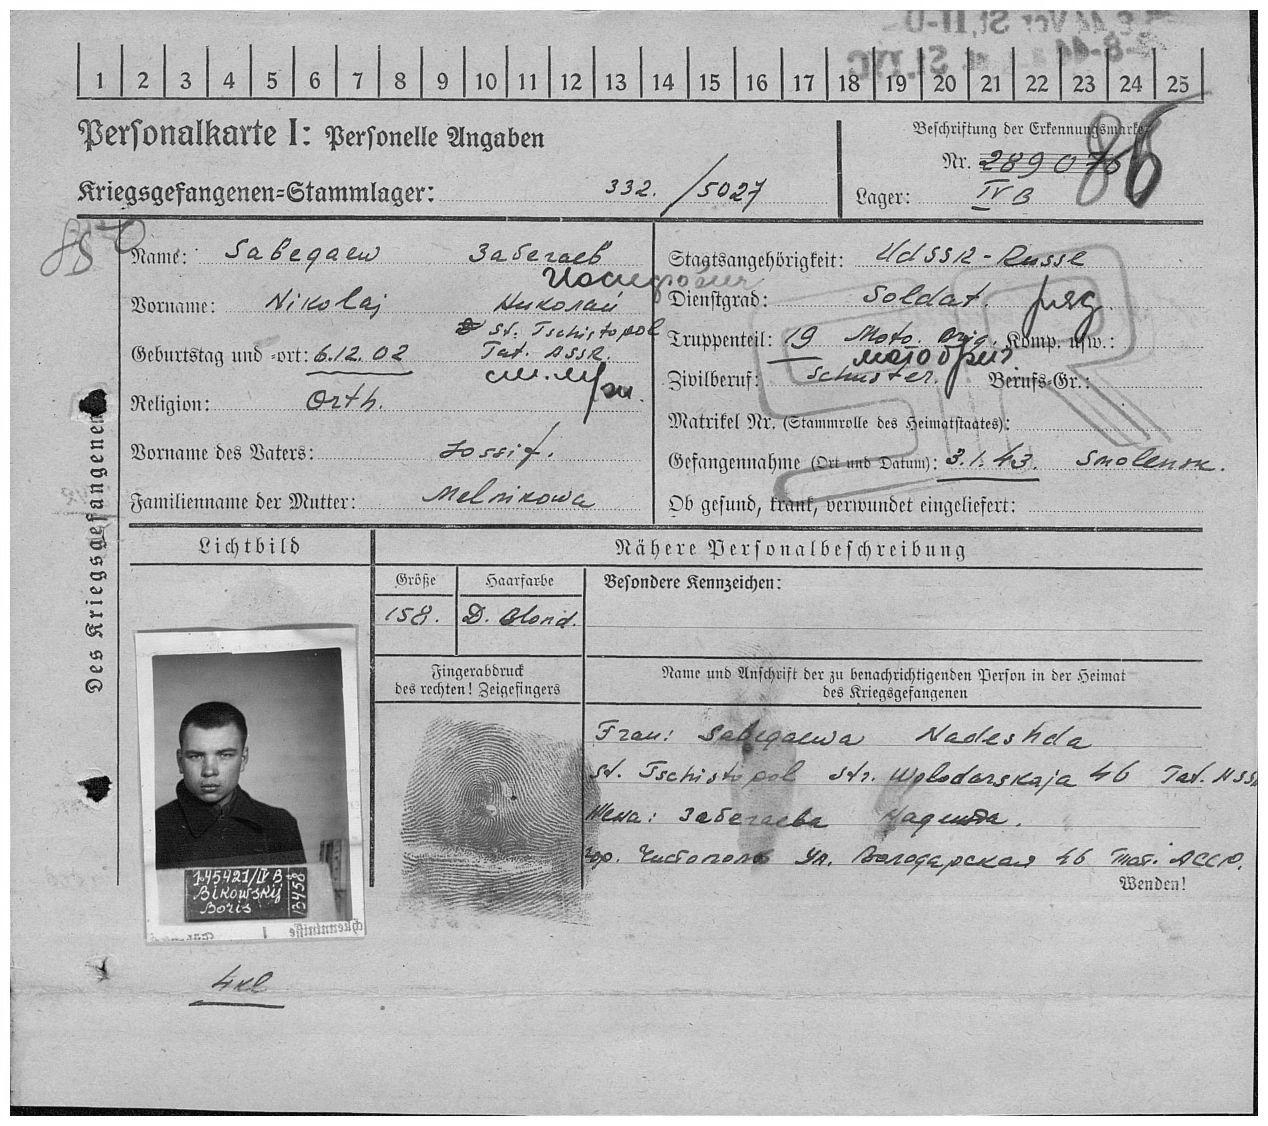 1 2 3 4 5 6 7 8 9 10 11 12 13 14 15 16 17 18 19 20 21 22 23 24 25
Personalkarte I: Personelle Angaben
Beschriftung der Erkennungsmarke
Nr. 289076
86
Kriegsgefangenen=Stammlager: 332. /5027
Lager: IV B
Des Kriegsgefangenen
Name: Sabegaew Забегаев
Иосифович
Vorname: Nikolaj Николай
St. Tschistopol
Geburtstag und =ort: 6.12.02 Tat. ASSR.
Religion: Orth.
Vorname des Vaters: Jossif.
Familienname der Mutter: Melnikowa
Staatsangehörigkeit: UdSSR-Russe
Dienstgrad: Soldat. ряд
Truppenteil: 19 Moto. Brig. Komp. usw.:
мото бриг
Zivilberuf: Schuster. Berufs-Gr.:
Matrikel Nr. (Stammrolle des Heimatstaates):
Gefangennahme (Ort und Datum): 3.1.43. Smolensk.
Ob gesund, krank, verwundet eingeliefert:
SR
Lichtbild
Nähere Personalbeschreibung
Größe Haarfarbe Besondere Kennzeichen:
158. D. Blond.
Fingerabdruck
des rechten! Zeigefingers
Name und Anschrift der zu benachrichtigenden Person in der Heimat
des Kriegsgefangenen
Frau: Sabegaewa Nadeshda
St. Tschistopol Str. Wolodarskaja 46 Tat. ASSR
Жена: Забегаева Надежда.
гор. Чистополь Ул. Володарская 46 Тат. АССР.
Wenden!
145421/IV B
Bikowskij
Boris
13458
4кл